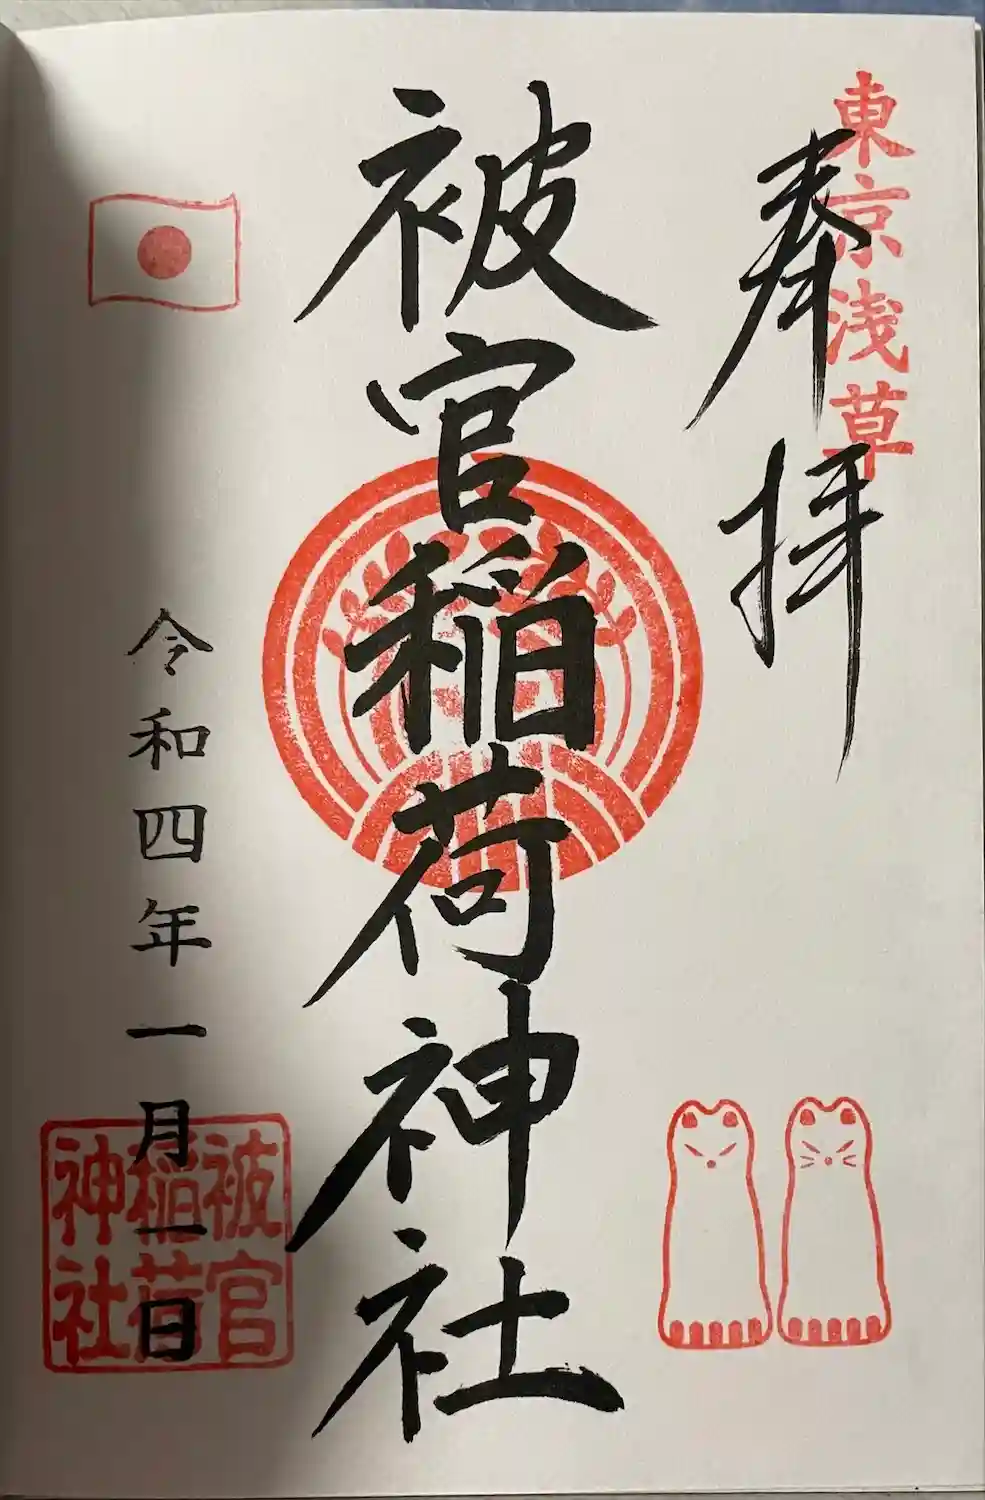 東京浅草
奉拝
被官稲荷神社
令和四年一月一日
被官
稲荷
神社